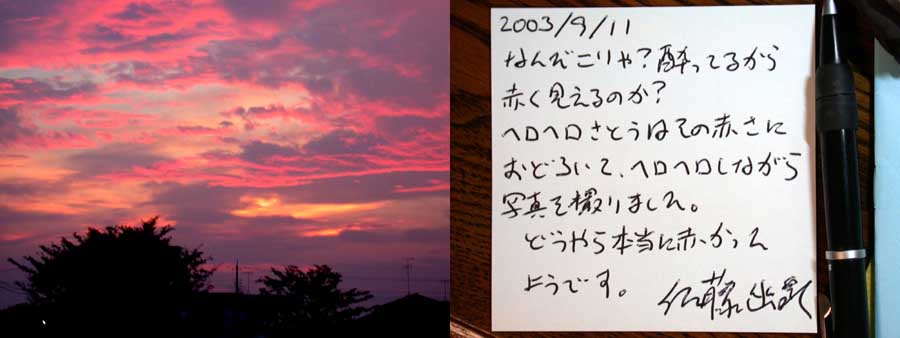 2003/9/11
なんでこりゃ?酔ってるから
赤く見えるのか?
ヘロヘロさとうはその赤さに
おどろいて、ヘロヘロしながら
写真を撮りました。
どうやら本当に赤かった
ようです。
佐藤